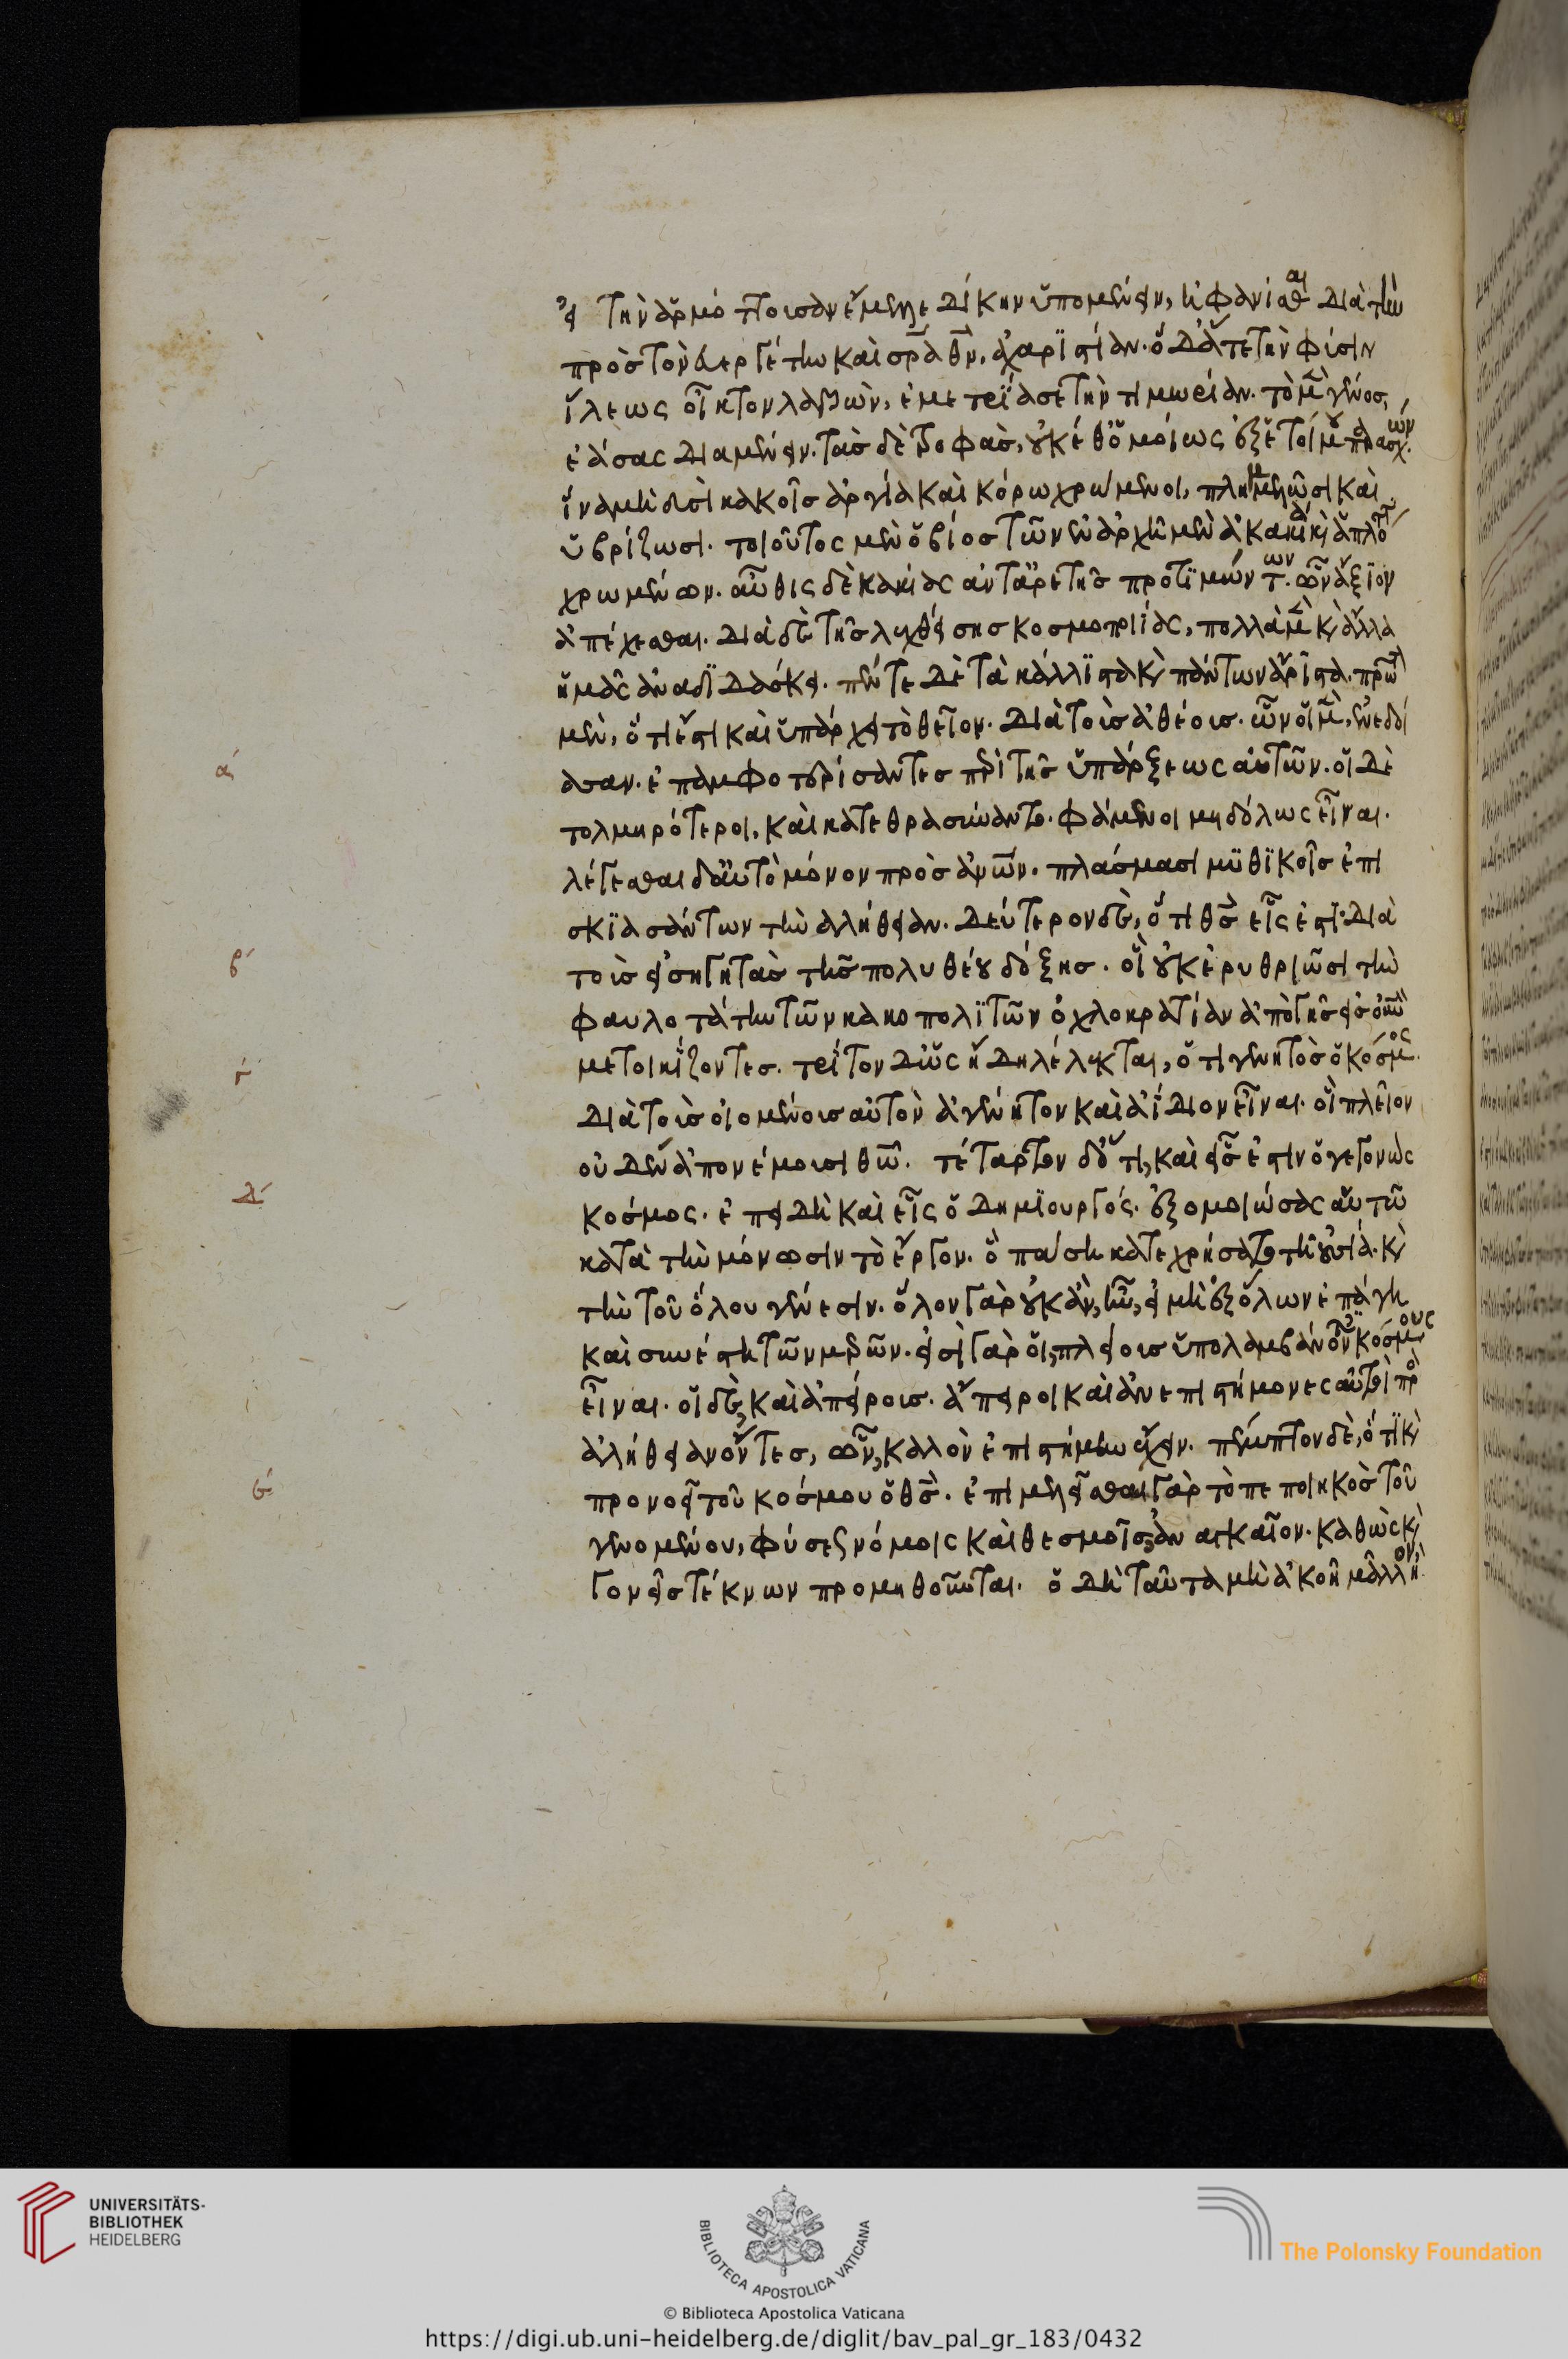 εἰ τὴν ἁρμόττουσαν ἔμελλε δίκην ὑπομένειν, ἠφανίσθαι διὰ τὴν
πρὸς τὸν εὐεργέτην καὶ σρ̅α θν̅, ἀχαριστίαν. ὁ δ' ἅτε τὴν φύσιν
ἵλεως οἶκτον λαβὼν, ἐμετρίασε τὴν τιμωρίαν. τὸ μὲν γένος,
ἐάσας διαμένειν. τὰς δὲ τροφὰς, οὐκέθ' ὁμοίως ἐξ ἑτοίμου παρασχών.
ἵνα μὴ δυσὶ κακοῖς ἀργία καὶ κόρω χρώμενοι, πλημμελῶσι καὶ
ὑβρίζωσι. τοιοῦτος μὲν ὁ βίος τῶν ἐν ἀρχῆ μὲν ἀκακία κ(αὶ) ἁπλότ
χρωμένων. αὖθις δὲ κακίας ἀντ' ἀρετῆς προτιμώντων. ὧν ἄξιον
ἀπέχεσθαι. διὰ δὲ τῆς λεχθείσης κοσμοποιίας, πολλὰ μὲν κ(αὶ) ἄλλα
ἡμᾶς ἀναδιδάσκει. πέντε δὲ τὰ κάλλιστα κ(αὶ) πάντων ἄριστα. πρῶτ
μὲν, ὅτι ἔστι καὶ ὑπάρχει τὸ θεῖον. διὰ τοὺς ἀθέους. ὧν οἱ μὲν, ἐνεδοί
ασαν. ἐπαμφοτερίσαντες περὶ τῆς ὑπάρξεως αὐτῶν. οἱ δὲ
τολμηρότεροι, καὶ κατεθρασύναντο. φάμενοι μηδόλως εἶναι.
λέγεσθαι δ' αὐτὸ μόνον πρὸς ἀνω̅ν. πλάσμασι μυθικοῖς ἐπι
σκιασάντων τὴν ἀλήθειαν. δεύτερον δὲ, ὅτι θς̅ εἷς ἐστὶ. διὰ
τοὺς εἰσηγητὰς τῆς πολυθέου δόξης. οἳ οὐκ ἐρυθριῶσι τὴν
φαυλοτάτην τῶν κακοπολιτῶν ὀχλοκρατίαν ἀπὸ γῆς εἰς ουν̅ον
μετοικίζοντες. τρίτον δ' ὡς ἤδη λέλεκται, ὅτι γενητὸς ὁ κόσμος.
διὰ τοὺς οἰομένους αὐτὸν ἀγένητον καὶ ἀΐδιον εἶναι. οἳ πλεῖον
οὐδὲν ἀπονέμουσι θω̅. τέταρτον δ' ὅτι, καὶ εἷς ἐστὶν ὁ γεγονὼς
κόσμος. ἐπειδὴ καὶ εἷς ὁ δημιουργός. ἐξομοιώσας αὑτῶ
κατὰ τὴν μόνωσιν τὸ ἔργον. ὃ πάση κατεχρήσατο τῆ οὐσία. κ(αὶ)
τὴν τοῦ ὅλου γένεσιν. ὅλον γὰρ οὐκ ἂν, ἦν, εἰ μὴ ἐξ ὅλων ἐπάγη
καὶ συνέστη τῶν μερῶν. εἰσὶ γὰρ οἳ, πλείους ὑπολαμβάνουσιν κόσμους
εἶναι. οἳ δὲ, καὶ ἀπείρους. ἄπειροι καὶ ἀνεπιστήμονες αὐτοὶ πρ
ἀλήθειαν ὄντες, ὧν, καλὸν ἐπιστήμην ἔχειν. πέμπτον δὲ, ὅτι κ(αὶ)
προνοεῖ τοῦ κόσμου ὁ θς̅. ἐπιμελεῖσθαι γὰρ τὸ πεποιηκὸς τοῦ
γενομένου, φύσεως νόμοις καὶ θεσμοῖς, ἀναγκαῖον. καθὼς κ(αὶ)
γονεῖς τέκνων προμηθοῦνται. ὁ δὴ ταῦτα μὴ ἀκοῆ μᾶλλον ἢ
α´
β´
γ´
δ´
ε´
UNIVERSITÄTS-
BIBLIOTHEK
HEIDELBERG
BIBLIOTECA APOSTOLICA VATICANA
The Polonsky Foundation
© Biblioteca Apostolica Vaticana
https://digi.ub.uni-heidelberg.de/diglit/bav_pal_gr_183/0432